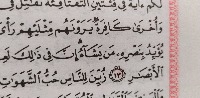 لَكُمْ ءَايَةٌ فِي فِئَتَيْنِ ٱلْتَقَتَا فِئَةٌ تُقَٰتِلُ فِي
وَأُخْرَىٰ كَافِرَةٌ يَرَوْنَهُم مِّثْلَيْهِمْ
يُؤَيِّدُ بِنَصْرِهِۦ مَن يَشَآءُ إِنَّ فِي ذَٰلِكَ
ٱلْأَبْصَٰرِ ١٣ زُيِّنَ لِلنَّاسِ حُبُّ ٱلشَّهَوَٰتِ